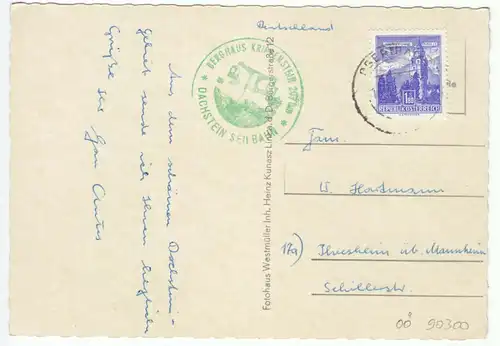 Aus dem schönen Dachstein-
gebiet sende ich Ihnen herzliche
Grüße
Deutschland
BERGHAUS KRIPPENSTEIN 2071m
DACHSTEIN SEILBAHN
REPUBLIK ÖSTERREICH
Fotohaus Westmüller Inh. Heinz Kunasz Linz a. d. D. Bürgerstraße 12
Fam.
W. Hartmann
17a) Ilvesheim üb. Mannheim
Schillerstr.
OÖ 90300